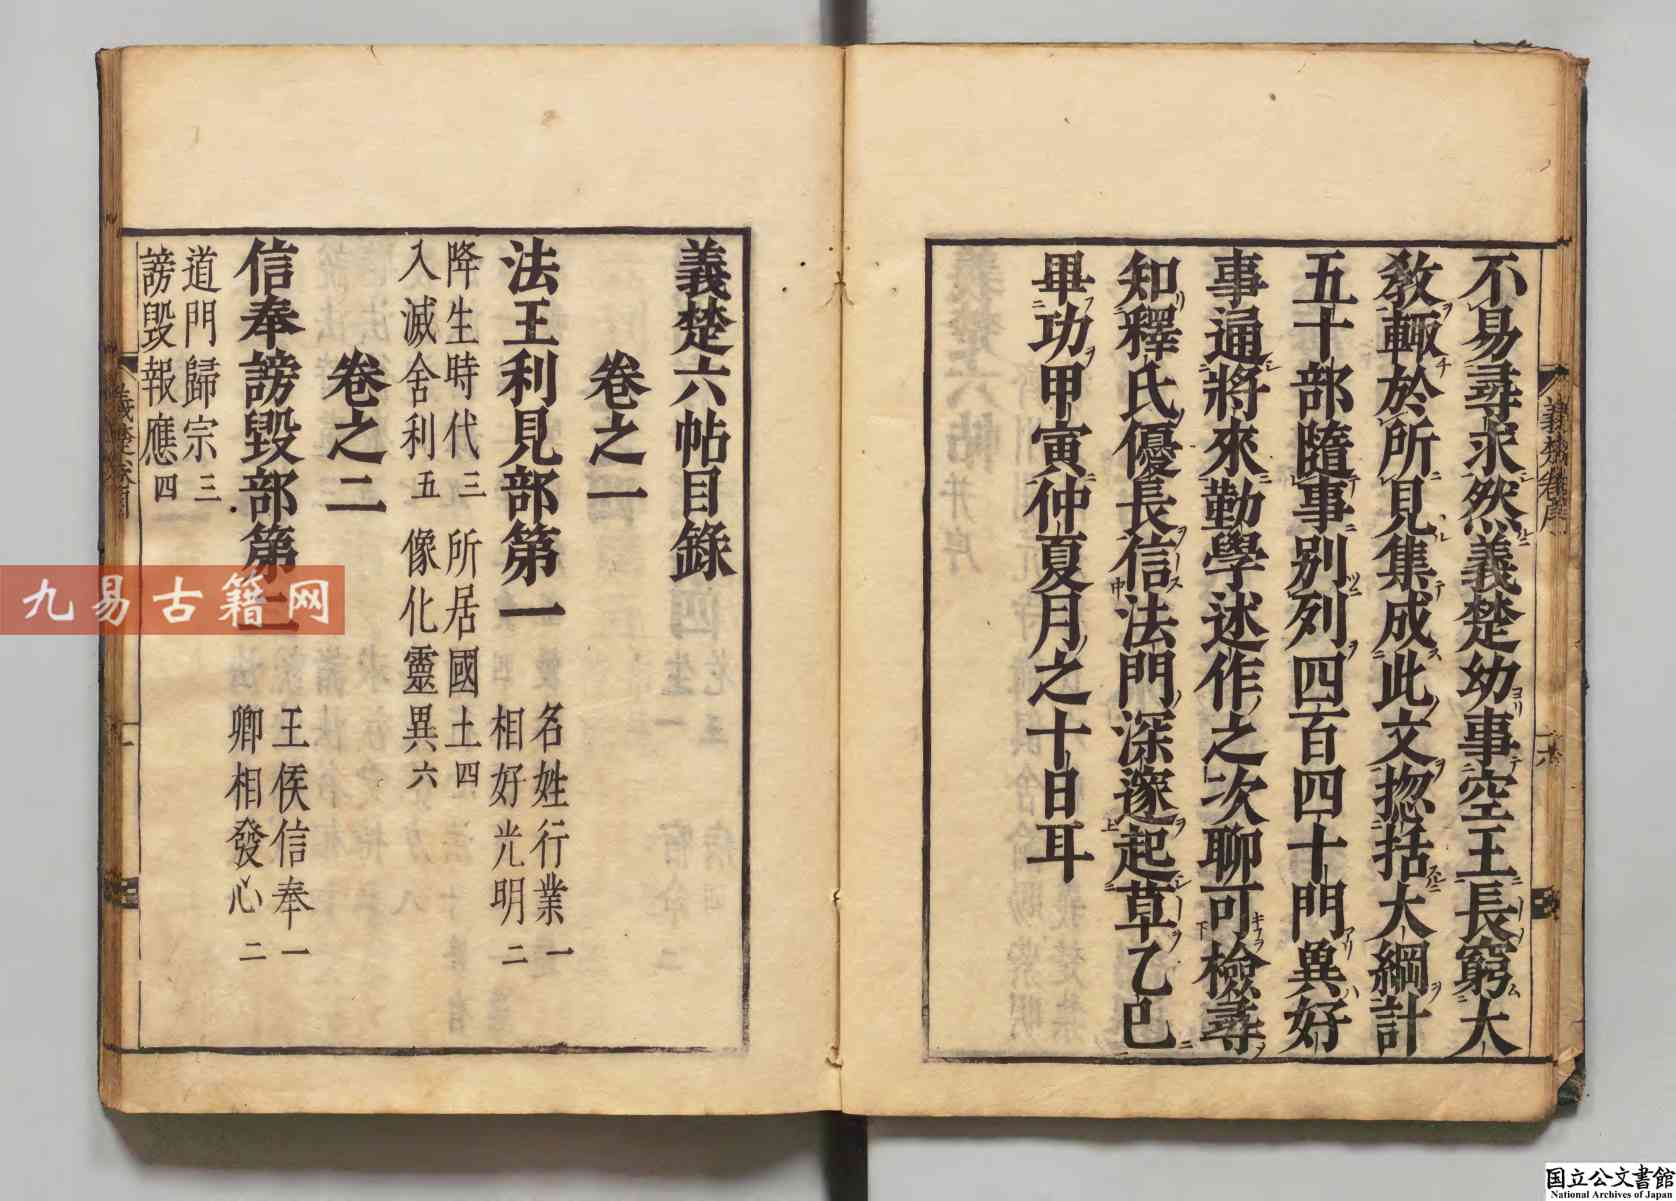 不易尋求然義楚幼事空王長窮大
教輙於所見集成此文揔括大綱計
五十部隨事別列四百四十門異好
事逼將來勤學述作之次聊可檢尋
知釋氏優長信法門深邃起草乙巳
畢功甲寅仲夏月之十日耳
義楚六帖目錄
卷之一
法王利見部第一
名姓行業一
相好光明二
降生時代三 所居國土四
入滅舍利五 像化靈異六
卷之二
信奉謗毀部第二
王侯信奉一
卿相發心二
道門歸宗三
謗毀報應四
九易古籍网
国立公文書館
National Archives of Japan